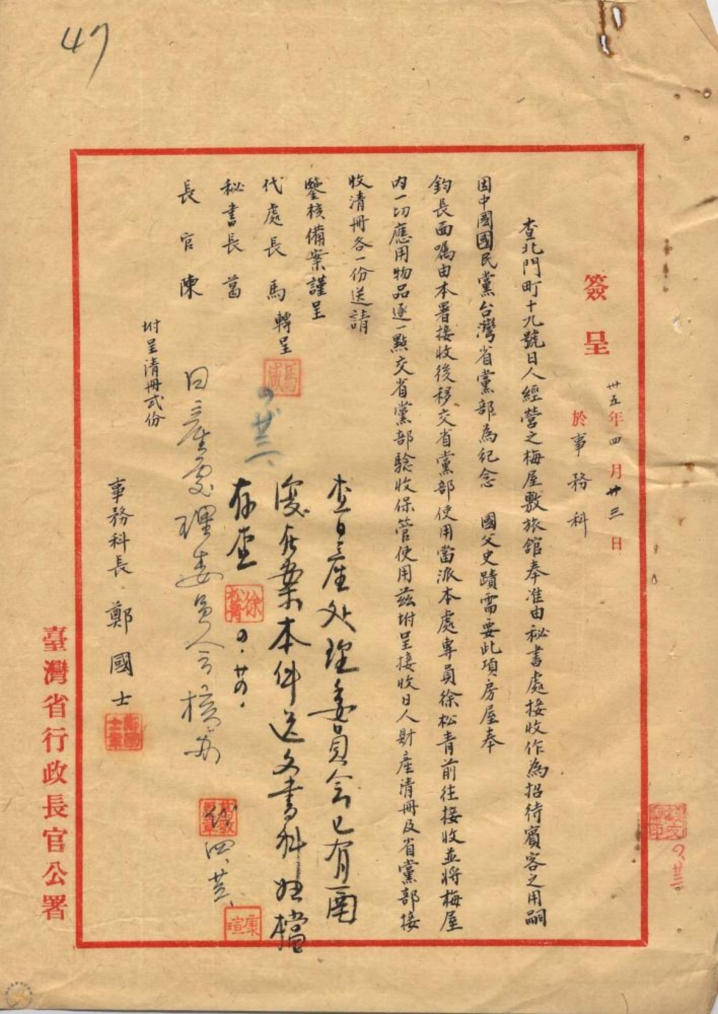 47
簽呈
卅五年四月廿三日
於事務科
查北門町十九號日人經營之梅屋敷旅館奉准由秘書處接收作為招待賓客之用嗣
因中國國民黨台灣省黨部為紀念 國父史蹟需要此項房屋奉
鈞長面囑由本署接收後移交省黨部使用當派本處專員徐松青前往接收並將梅屋
內一切應用物品逐一點交省黨部驗收保管使用茲附呈接收日人財產清冊及省黨部接
收清冊各一份送請
鑒核備案謹呈
代處長 馬 轉呈
秘書長 葛
長官 陳
附呈清冊貳份
事務科長 鄭國士
查日產处理委員会已有函
復在案本件送文書科歸檔
存查
徐松青
日產處理委員会核办
臺灣省行政長官公署